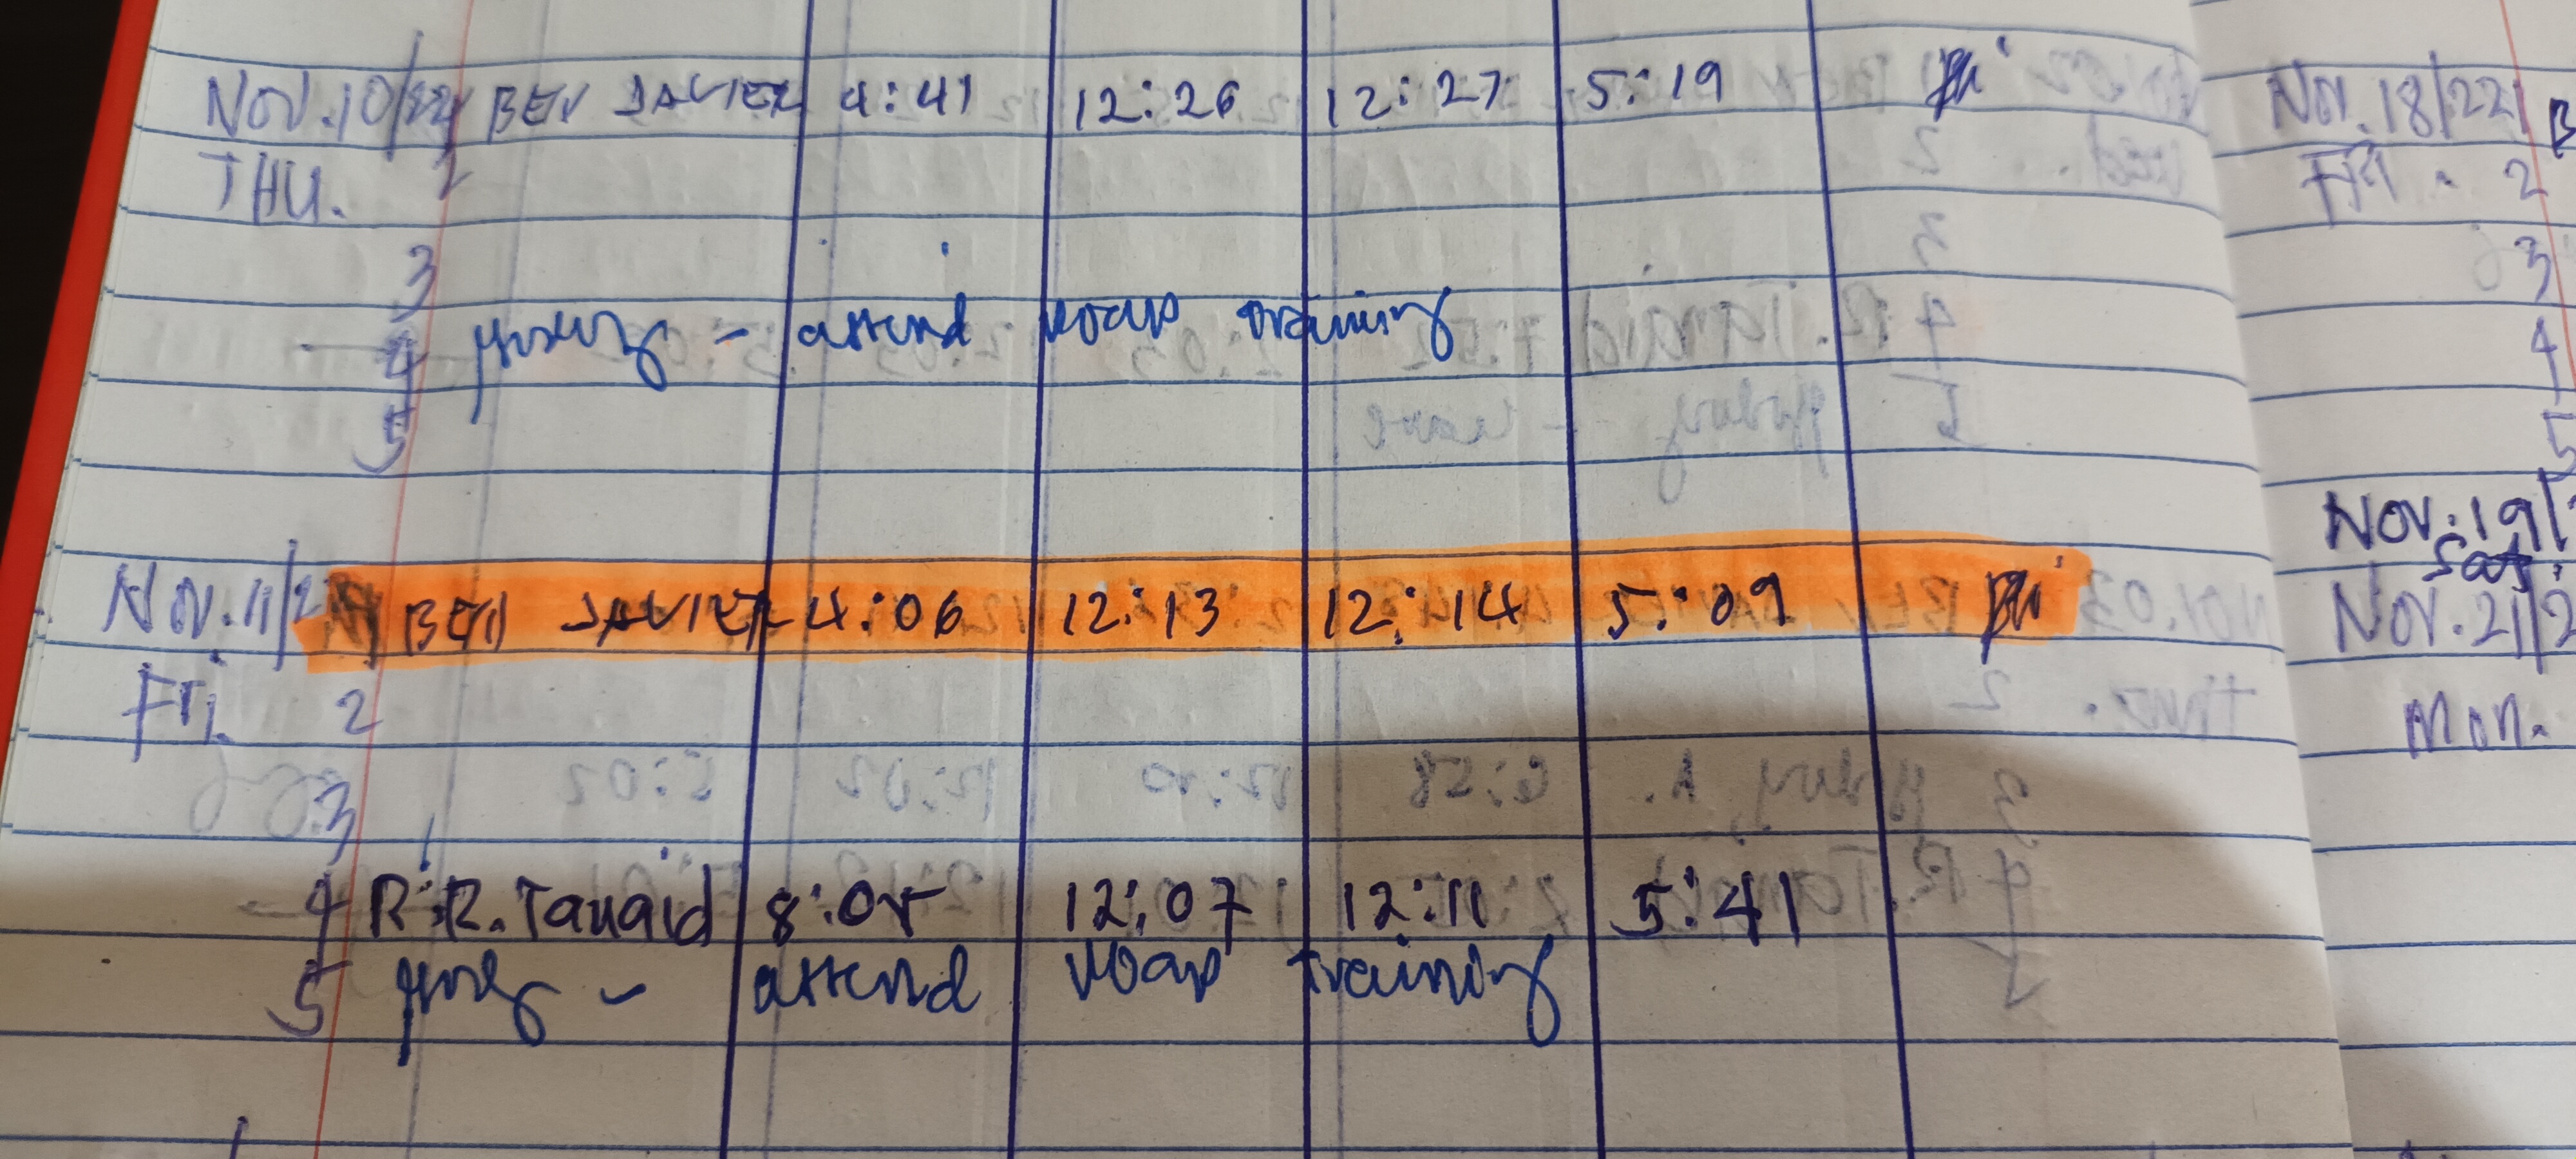 NOV.10/22 1 BEN JAVIER 4:41 12:26 12:27 5:19
THU. 2
3
4 - attend training
5
Nov.11/22 1 BEN JAVIER 4:06 12:13 12:14 5:09
Fri. 2
3
4 R.R. Tanaid 8:05 12:07 12:11 5:41
5 - attend training
Nov. 18/22
Fri. 2
3
4
5
NOV. 19/
Sat.
Nov. 21/2
Mon.